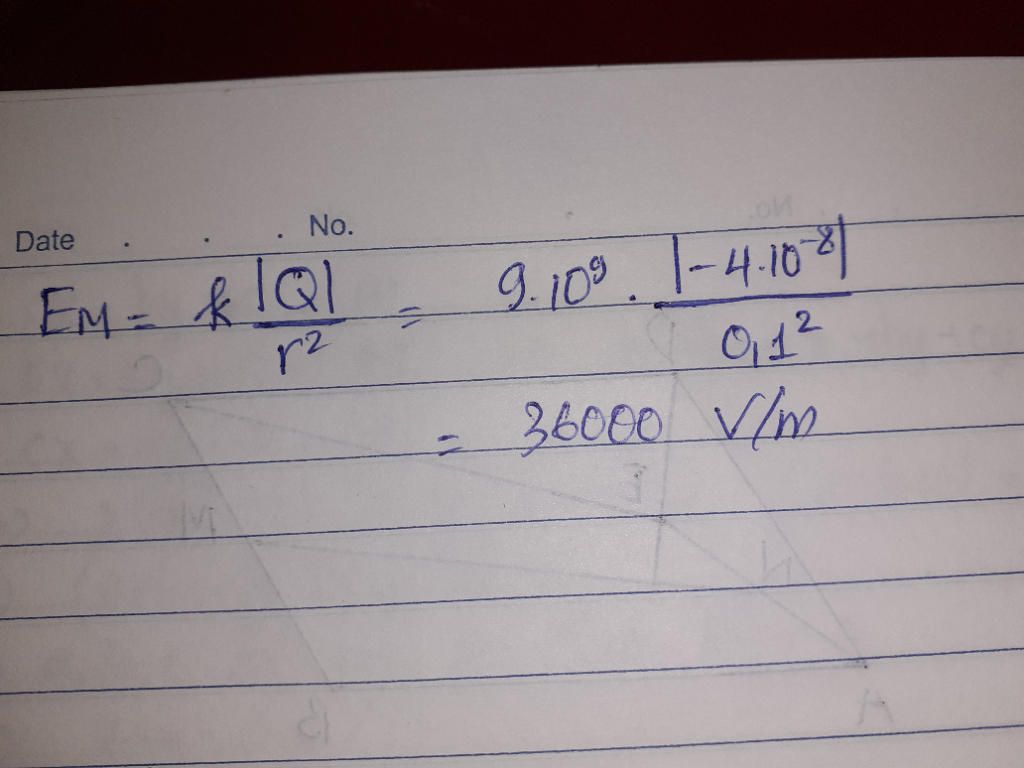 Date . . . No.
E_M = k |Q| / r² = 9.10⁹ . |-4.10⁻⁸| / 0,1²
= 36000 V/m
C
D
M
E
N
B
A